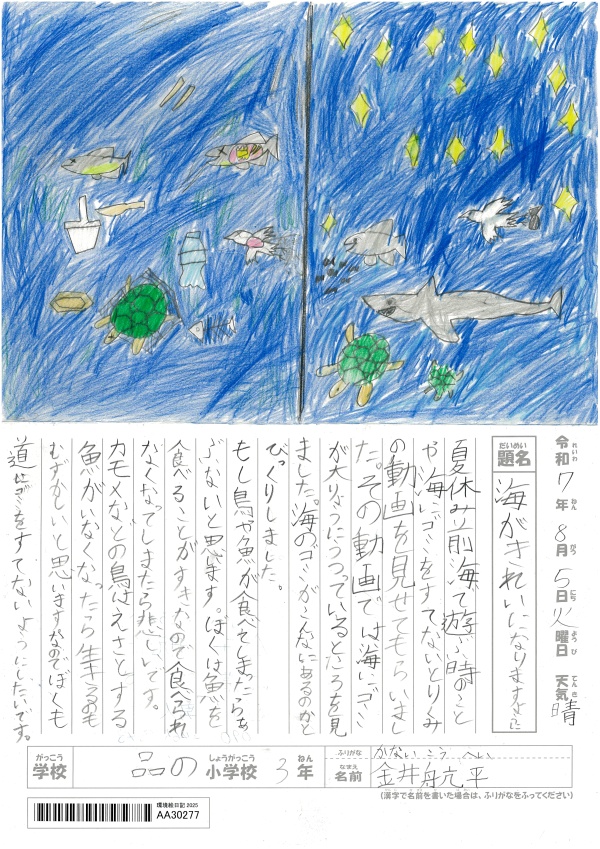 令和7年8月5日火曜日 天気晴
れいわ ねん がつ にち ようび てんき
だいめい
題名 海がきれいになりますように
夏休み前海で遊ぶ時のこと
や海にゴミをすてないとりくみ
の動画を見せてもらいまし
た。その動画では海にゴミ
が大りょうにうつっているところを見
ました。海のゴミがこんなにあるのかと
びっくりしました。
もし鳥や魚が食べてしまったらあ
ぶないと思います。ぼくは魚を
食べることがすきなので食べられ
なくなってしまたら悲しいです。
カモメなどの鳥はえさとする
魚がいなくなったら生きるのも
むずかしいと思いますなのでぼくも
道にゴミをすてないようにしたいです。
がっこう しょうがっこう ねん
学校 品の小学校 3年
ふりがな かない こう へい
なまえ
名前 金井航平
(漢字で名前を書いた場合は、ふりがなをふってください)
環境絵日記 2025
AA30277